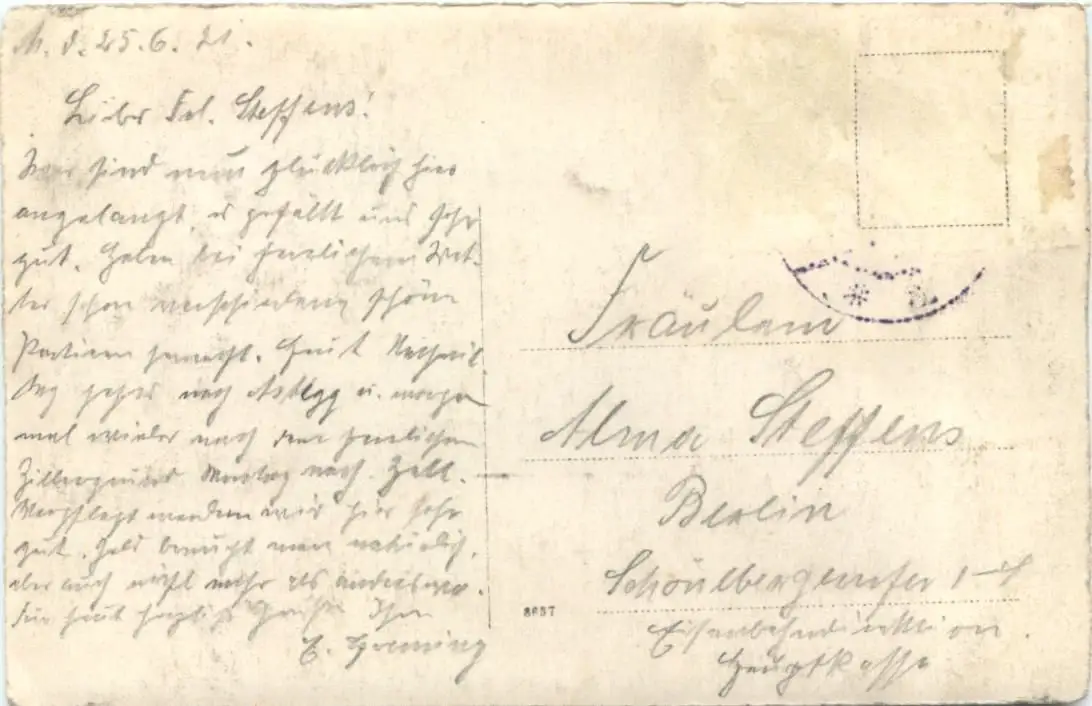 M. d. 25.6.21.
Liebes Frl. Steffens!
Wir sind nun glücklich hier
angelangt, es gefällt uns sehr
gut. Haben bei herrlichem Wet-
ter schon verschiedene schöne
Partieen gemacht. Heut Nachmit-
tag gehts nach Astegg u. morgen
mal wieder nach dem herrlichen
Zillergrund Montag nach Zell.
Verpflegt werden wir hier sehr
gut. Geld braucht man natürlich,
aber auch nicht mehr als anderswo.
Für heut herzliche Grüße Ihr
E.
Fräulein
Alma Steffens
Berlin
Schönebergerufer 1-4
Eisenbahndirektion.
Hauptkasse
8657